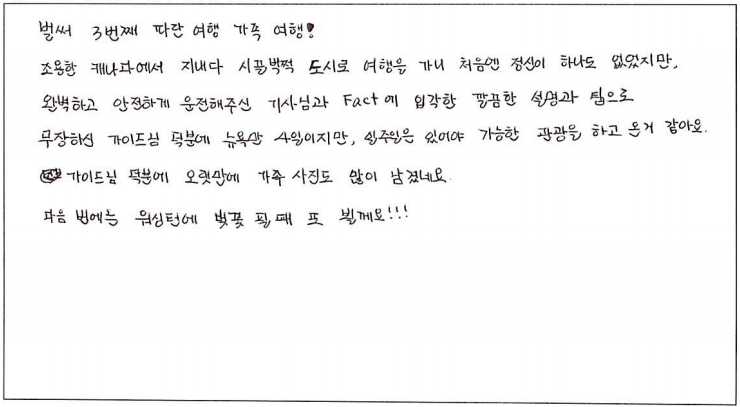 벌써 3번째 파란 여행 가족 여행!
조용한 캐나다에서 지내다 시끌벅쩍 도시로 여행을 가니 처음엔 정신이 하나도 없었지만,
완벽하고 안전하게 운전해주신 기사님과 Fact에 입각한 깔끔한 설명과 팁으로
무장하신 가이드님 덕분에 뉴욕만 4일이지만, 일주일은 있어야 가능한 관광을 하고 온거 같아요.
가이드님 덕분에 오랫만에 가족 사진도 많이 남겼네요.
다음 번에는 워싱턴에 벚꽃 필 때 또 뵐게요!!!